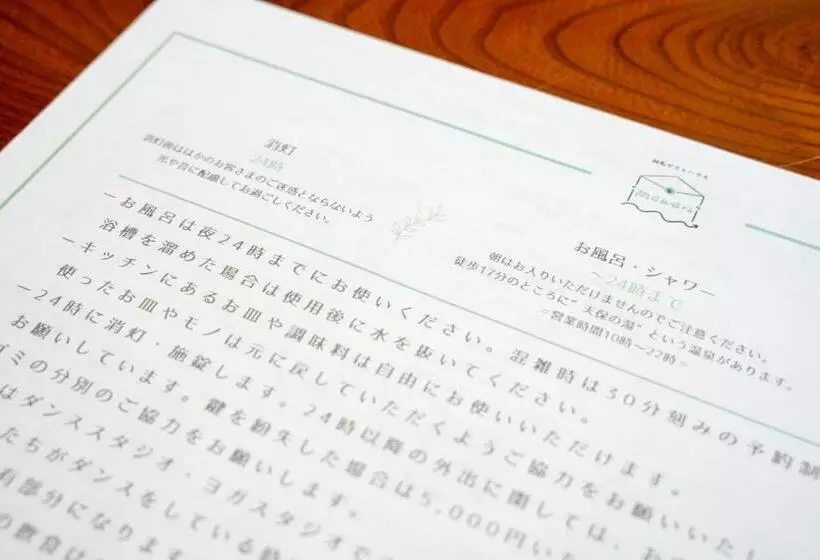 消灯
24時
消灯前ははかのお客さまのご迷惑とならないよう
光や音に配慮してお過ごしください。
お風呂・シャワー
〜24時まで
朝はお入りいただけませんのでご注意ください。
徒歩17分のところに"天保の湯"という温泉があります。
営業時間10時〜22時
ーお風呂は夜24時までにお使いください。混雑時は30分刻みの予約制
浴槽を溜めた場合は使用後に水を抜いてください。
ーキッチンにあるお皿や調味料は自由にお使いいただけます。
使ったお皿やモノは元に戻していただくようご協力をお願いいたし
ー24時に消灯・施錠します。24時以降の外出に関しては、お
お願いしています。鍵を紛失した場合は5,000円い
ゴミの分別のご協力をお願いします。
はダンススタジオ・ヨガスタジオで
たちがダンスをしている時
有部分になります
の飲食は